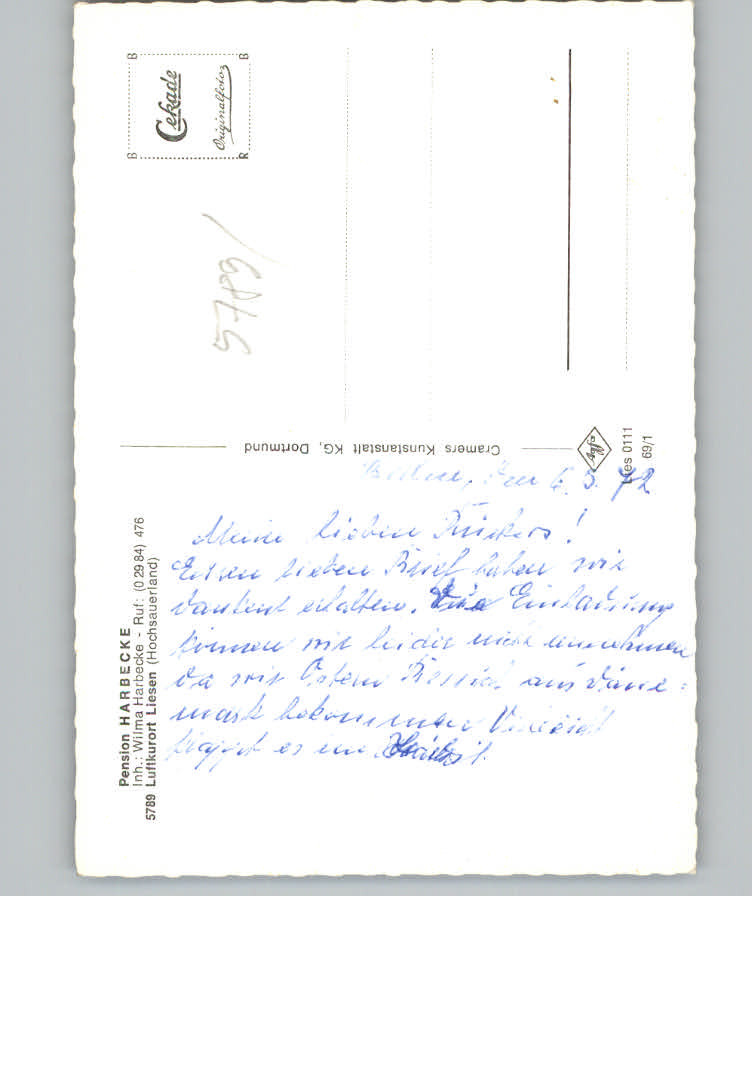 Pension HARBECKE
Inh.: Wilma Harbecke - Ruf: (0 29 84) 476
5789 Luftkurort Liesen (Hochsauerland)
Cekade
Originalfoto
B B B R
5789/
Cramers Kunstanstalt KG, Dortmund
Agfa
Lies 0111
69/1
den 6.3.72
Meine lieben
Euren lieben Brief haben wir
dankend erhalten. Die Einladung
können wir leider nicht annehmen
da wir Ostern Besuch aus Däne=
mark bekommen Vielleicht
klappt es im Herbst.